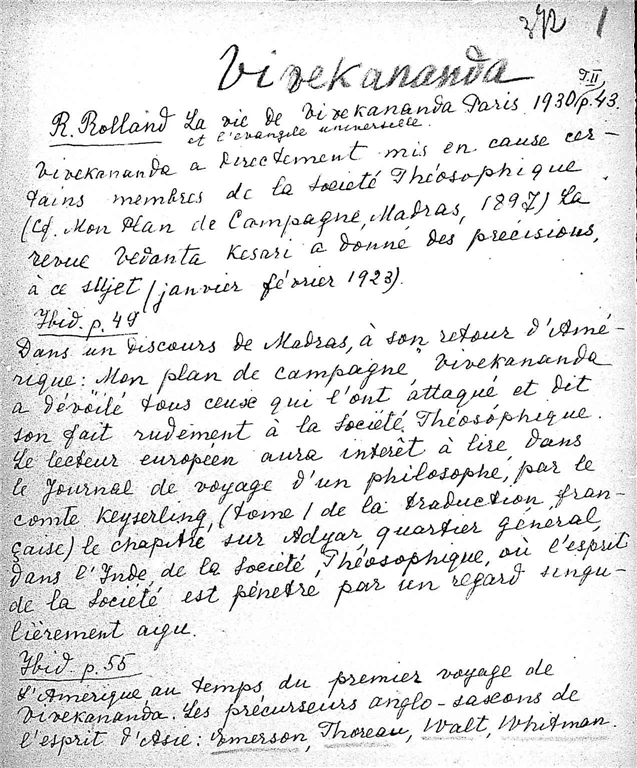 372 1
Vivekananda
R. Rolland La vie de Vivekananda Paris 1930 T.II p. 43.
et l'évangile universelle.
Vivekananda a directement mis en cause cer-
tains membres de la Société Théosophique
(Cf. Mon Plan de Campagne, Madras, 1897) La
revue Vedanta Kesari a donné des precisions,
à ce sujet (janvier février 1923).
Ibid. p. 49
Dans un discours de Madras, à son retour d'Amé-
rique: Mon plan de campagne, Vivekananda
a dévoilé tous ceux qui l'ont attaqué et dit
son fait rudement à la Société Théosophique.
Le lecteur europeen aura interêt à lire dans
le Journal de voyage d'un philosophe, par le
comte Keyserling, (tome I de la traduction fran-
çaise) le chapitre sur Adyar, quartier général,
dans l'Inde, de la Société Théosophique, où l'esprit
de la Société est pénetré par un regard singu-
lièrement aigu.
Ibid p. 55
L'Amerique au temps du premier voyage de
Vivekananda. Les précurseurs anglo-saxons de
l'esprit d'Asie: Emerson, Thoreau, Walt, Whitman.